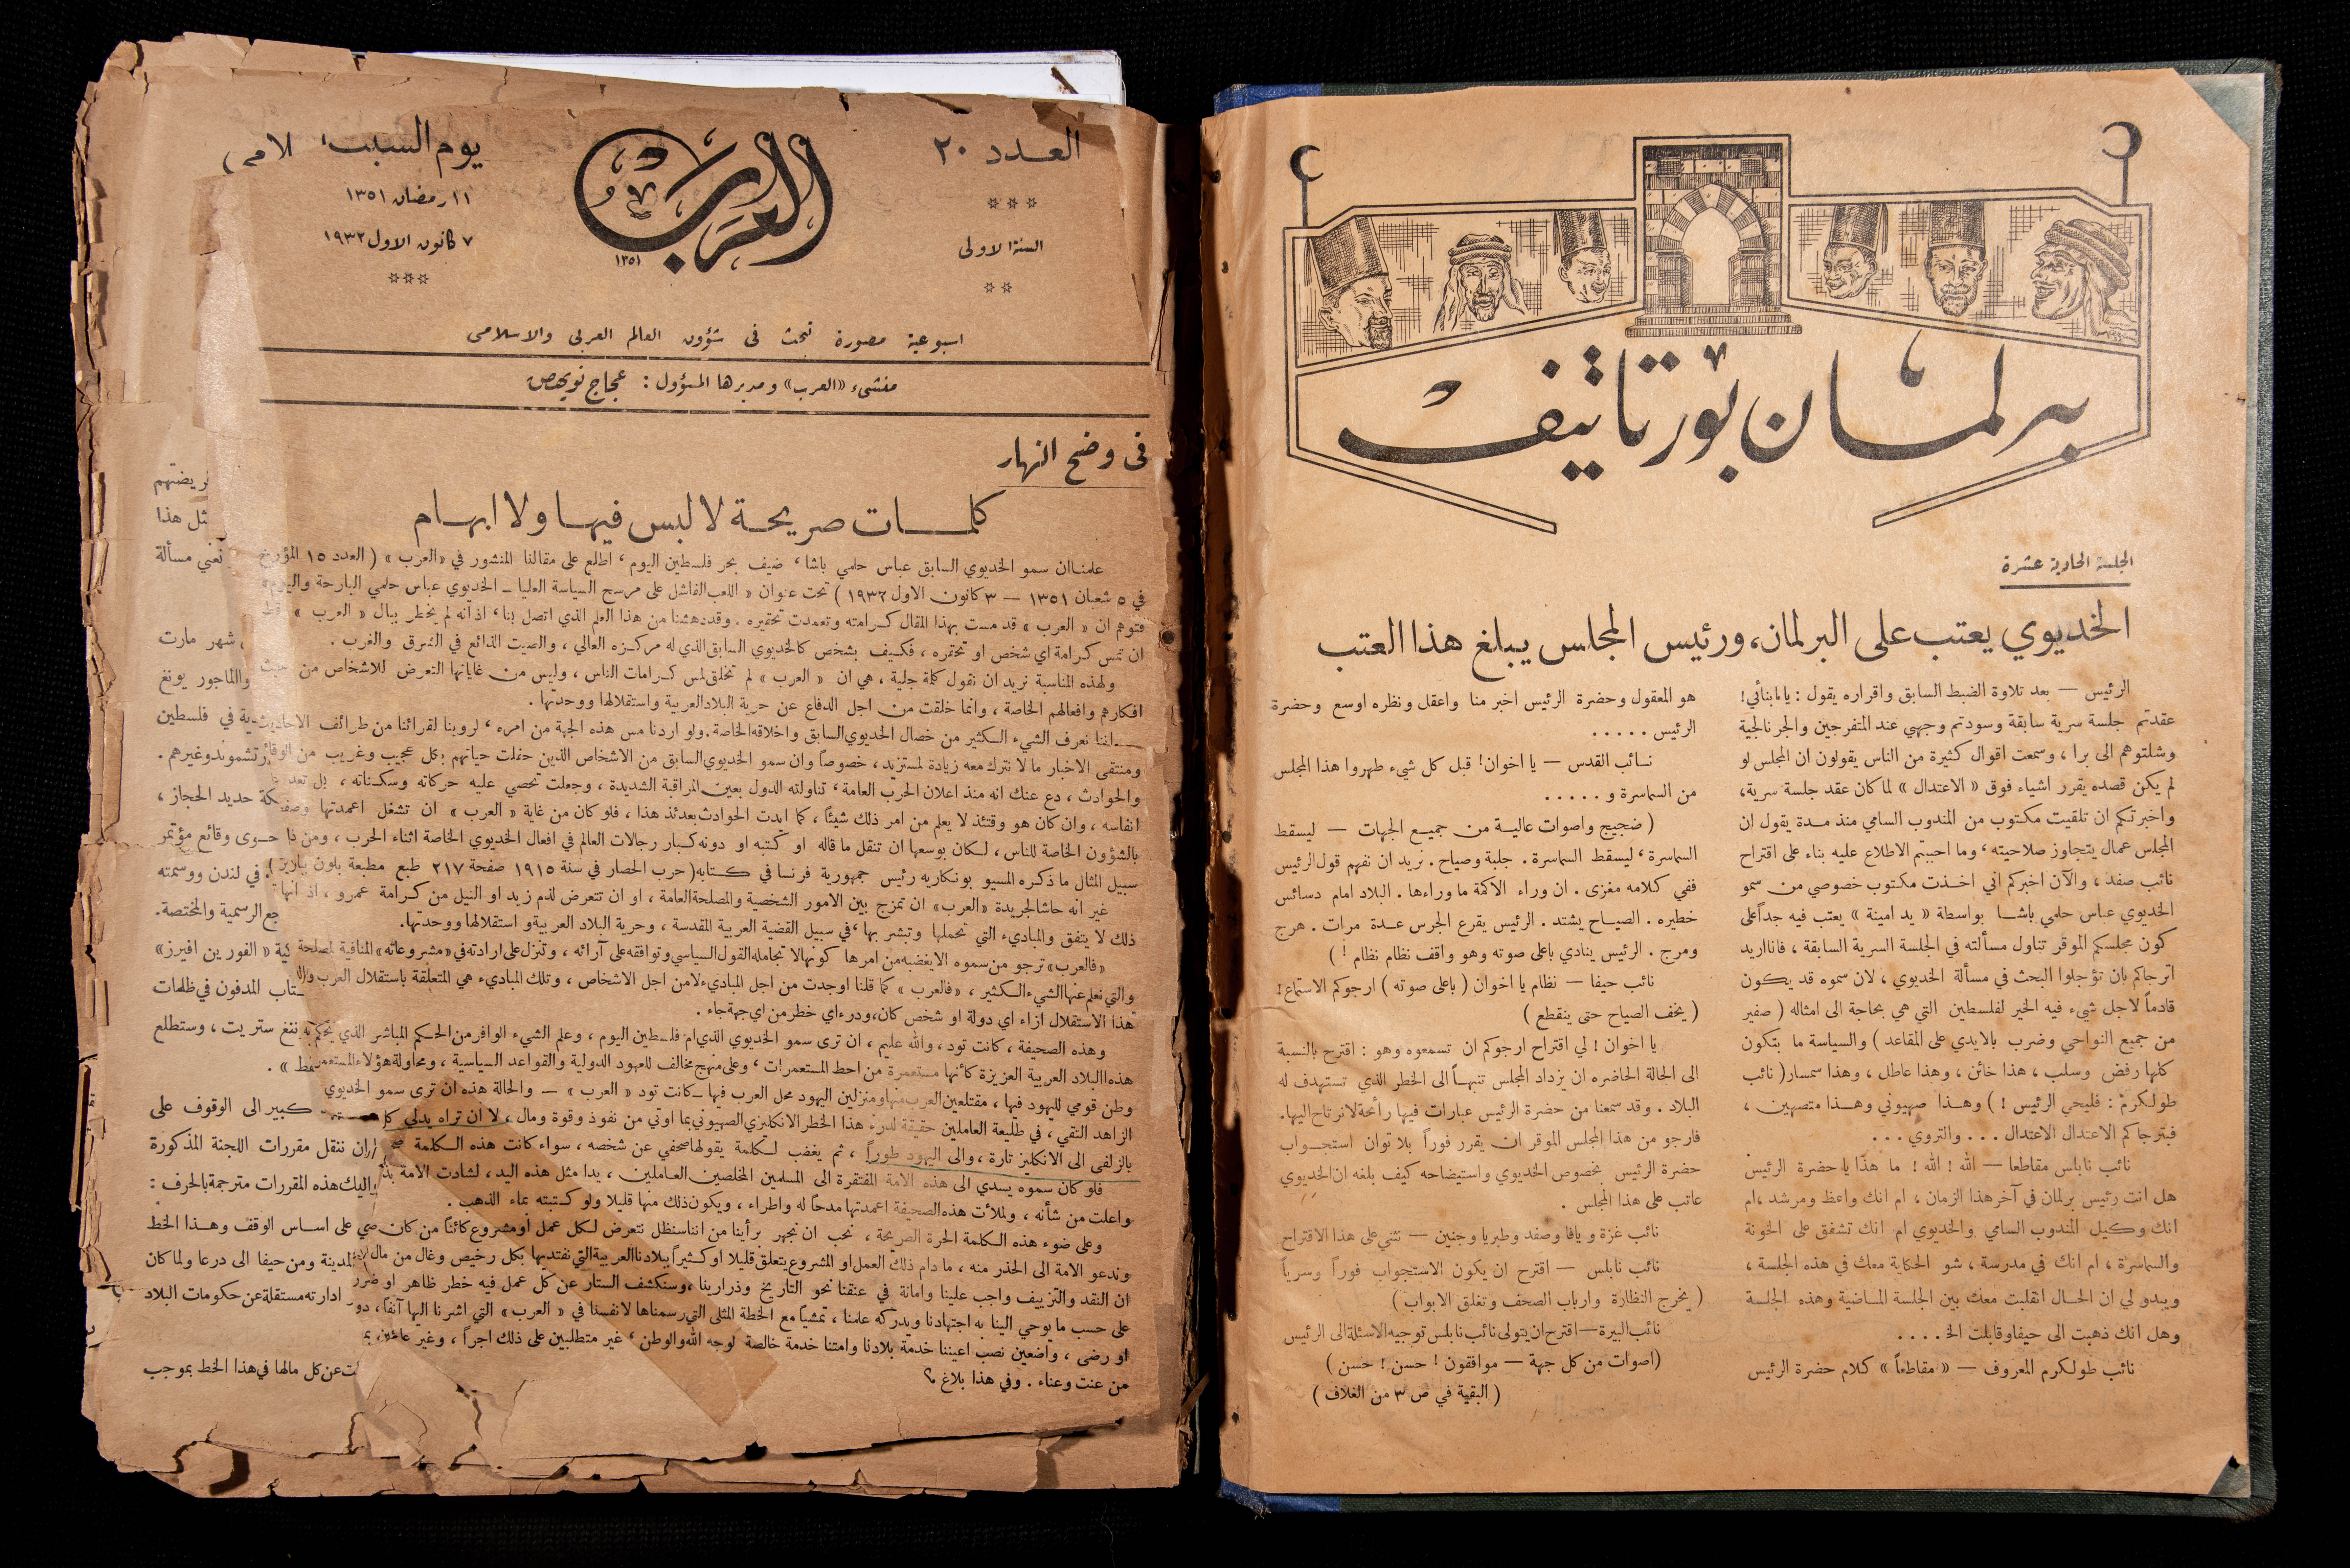 برلمان بورتاتيف
الجلسة الحادية عشرة
الخديوي يعتب على البرلمان، ورئيس المجلس يبلغ هذا العتب
الرئيس — بعد تلاوة الضبط السابق واقراره يقول : يامابنائي!
عقدتم جلسة سرية سابقة وسودتم وجهي عند المتفرجين والجرنالجية
وشلتوهم الى برا ، وسمعت اقوال كثيرة من الناس يقولون ان المجلس لو
لم يكن قصده يقرر اشياء فوق « الاعتدال » لما كان عقد جلسة سرية،
واخبرتكم ان تلقيت مكتوب من المندوب السامي منذ مدة يقول ان
المجلس عمال يتجاوز صلاحيته ، وما احببتم الاطلاع عليه بناء على اقتراح
نائب صفد ، والآن اخبركم اني اخذت مكتوب خصوصي من سمو
الخديوي عباس حلمي باشا بواسطة « يد امينة » يعتب فيه جداً على
كون مجلسكم الموقر تناول مسألته في الجلسة السرية السابقة ، فانا اريد
اترجاكم بان تؤجلوا البحث في مسألة الخديوي ، لان سموه قد يكون
قادماً لاجل شيء فيه الخير لفلسطين التي هي بحاجة الى امثاله ( صفير
من جميع النواحي وضرب بالايدي على المقاعد ) والسياسة ما بتكون
كلها رفض وسلب ، هذا خائن ، وهذا عاطل ، وهذا سمسار ( نائب
طولكرم : فليحي الرئيس ! ) وهذا صهيوني وهذا متصهين ،
فبترجاكم الاعتدال الاعتدال . . . والتروي . . .
نائب نابلس مقاطعا — الله ! الله ! ما هذا يا حضرة الرئيس
هل انت رئيس برلمان في آخر هذا الزمان ، ام انك واعظ ومرشد ،ام
انك وكيل المندوب السامي والخديوي ام انك تشفق على الخونة
والسماسرة ، ام انك في مدرسة ، شو الحكاية معك في هذه الجلسة ،
ويبدو لي ان الحال انقلبت معك بين الجلسة الماضية وهذه الجلسة
وهل انك ذهبت الى حيفا وقابلت الخ . . . .
نائب طولكرم المعروف — « مقاطعاً » كلام حضرة الرئيس
هو المعقول وحضرة الرئيس اخبر منا واعقل ونظره اوسع وحضرة
الرئيس . . . . .
نائب القدس — يا اخوان! قبل كل شيء طهروا هذا المجلس
من السماسرة و . . . . .
( ضجيج واصوات عالية من جميع الجهات — ليسقط
السماسرة ، ليسقط السماسرة . جلبة وصياح . نريد ان نفهم قول الرئيس
ففي كلامه مغزى . ان وراء الاكمة ما وراءها . البلاد امام دسائس
خطيره . الصياح يشتد . الرئيس يقرع الجرس عدة مرات . هرج
ومرج . الرئيس ينادي باعلى صوته وهو واقف نظام نظام ! )
نائب حيفا — نظام يا اخوان ( باعلى صوته ) ارجوكم الاستماع!
( يخف الصياح حتى ينقطع )
يا اخوان ! لي اقتراح ارجوكم ان تسمعوه وهو : اقترح بالنسبة
الى الحالة الحاضره ان يزداد المجلس تنبهاً الى الخطر الذي تستهدف له
البلاد . وقد سمعنا من حضرة الرئيس عبارات فيها رائحة لا نرتاح اليها.
فارجو من هذا المجلس الموقر ان يقرر فوراً بلا توان استجواب
حضرة الرئيس بخصوص الخديوي واستيضاحه كيف بلغه ان الخديوي
عاتب على هذا المجلس .
نائب غزة ويافا وصفد وطبريا وجنين — نثني على هذا الاقتراح
نائب نابلس — اقترح ان يكون الاستجواب فوراً وسرياً
( يخرج النظارة وارباب الصحف وتغلق الابواب )
نائب البيرة — اقترح ان يتولى نائب نابلس توجيه الاسئلة الى الرئيس
(اصوات من كل جهة — موافقون ! حسن ! حسن )
( البقية في ص ٣ من الغلاف )
العدد ٢٠
السنة الاولى
العرب
١٣٥١
يوم السبت
١١ رمضان ١٣٥١
٧ كانون الاول ١٩٣٢
اسبوعية مصورة تبحث في شؤون العالم العربي والاسلامي
منشىء «العرب» ومديرها المسؤول : عجاج نويهض
في وضح النهار
كلمات صريحة لا لبس فيها ولا ابهام
علمنا ان سمو الخديوي السابق عباس حلمي باشا ، ضيف بحر فلسطين اليوم ، اطلع على مقالنا المنشور في «العرب» ( العدد ١٥ المؤرخ
في ٥ شعبان ١٣٥١ — ٣ كانون الاول ١٩٣٢ ) تحت عنوان « اللعب الفاشل على مرسح السياسة العليا ــ الخديوي عباس حلمي البارحة واليوم»
فتوهم ان « العرب » قد مست بهذا المقال كرامته وتعمدت تحقيره . وقد دهشنا من هذا العلم الذي اتصل بنا، اذ انه لم يخطر ببال « العرب » قط
ان تمس كرامة اي شخص او تحقره ، فكيف بشخص كالخديوي السابق الذي له مركزه العالي ، والصيت الذائع في الشرق والغرب .
ولهذه المناسبة نريد ان نقول كلمة جلية ، هي ان « العرب » لم تخلق لمس كرامات الناس ، وليس من غاياتها التعرض للاشخاص من حيث
افكارهم وافعالهم الخاصة ، وانما خلقت من اجل الدفاع عن حرية البلاد العربية واستقلالها ووحدتها .
اننا نعرف الشيء الكثير من خصال الخديوي السابق واخلاقه الخاصة. ولو اردنا مس هذه الجهة من امره ، لروينا لقرائنا من طرائف الاحاديث
ومنتقى الاخبار ما لا نترك معه زيادة لمستزيد ، خصوصاً وان سمو الخديوي السابق من الاشخاص الذين حفلت حياتهم بكل عجيب وغريب من الوقائع
والحوادث ، دع عنك انه منذ اعلان الحرب العامة ، تناولته الدول بعين المراقبة الشديدة ، وجعلت تحصي عليه حركاته وسكناته ، بل تعد
انفاسه ، وان كان هو وقتئذ لا يعلم من امر ذلك شيئاً ، كما ابدت الحوادث بعدئذ هذا ، فلو كان من غاية « العرب » ان تشغل اعمدتها
بالشؤون الخاصة للناس ، لكان بوسعها ان تنقل ما قاله او كتبه او دونه كبار رجالات العالم في افعال الخديوي الخاصة اثناء الحرب ، ومن ذا
سبيل المثال ما ذكره المسيو بونكاريه رئيس جمهورية فرنسا في كتابه( حرب الحصار في سنة ١٩١٥ صفحة ٢١٧ طبع مطبعة بلون باريز )
غير انه حاشا لجريدة «العرب» ان تمزج بين الامور الشخصية والمصلحة العامة ، او ان تتعرض لذم زيد او النيل من كرامة عمرو ، اذ انها
ذلك لا يتفق والمباديء التي تحملها وتبشر بها ، في سبيل القضية العربية المقدسة ، وحرية البلاد العربية واستقلالها ووحدتها.
«فالعرب» ترجو من سموه الا يغضبه من امرها كونها لا تجامله القول السياسي وتوافقه على آرائه ، وتنزل على ارادته في «مشروعاته» المنافية لمصلحة
والتي نعلم عنها الشيء الكثير ، «فالعرب» كما قلنا اوجدت من اجل المباديء لا من اجل الاشخاص ، وتلك المباديء هي المتعلقة باستقلال العرب
هذا الاستقلال ازاء اي دولة او شخص كان، ودرء اي خطر من اي جهة جاء .
وهذه الصحيفة ، كانت تود ، والله عليم ، ان ترى سمو الخديوي الذي ام فلسطين اليوم ، وعلم الشيء الوافر من الحكم المباشر الذي تحكم به
هذه البلاد العربية العزيزة كأنها مستعمرة من احط المستعمرات ، وعلى منهج مخالف للعهود الدولية والقواعد السياسية ، ومحاولة هؤلاء المستعمر
وطن قومي لليهود فيها ، مقتلعين العرب منها ومنزلين اليهود محل العرب فيها ــ كانت تود « العرب » — والحالة هذه ان ترى سمو الخديوي
الزاهد التقي ، في طليعة العاملين حقيقة لدرء هذا الخطر الانكليزي الصهيوني بما اوتي من نفوذ وقوة ومال ، لا ان تراه يدلي
بالزلفى الى الانكليز تارة ، والى اليهود طوراً ، ثم يغضب لكلمة يقولها صحفي عن شخصه ، سواء كانت هذه الكلمة
فلو كان سموه يسدي الى هذه الامة المفتقرة الى المسلمين المخلصين العاملين ، يدا مثل هذه اليد ، لشادت الامة
واعلت من شأنه ، ولملأت هذه الصحيفة اعمدتها مدحاً له واطراء ، ويكون ذلك منها قليلا ولو كتبته بماء الذهب .
وعلى ضوء هذه الكلمة الحرة الصريحة ، نحب ان نجهر برأينا من اننا سنظل نتعرض لكل عمل او مشروع كائناً من كان
وندعو الامة الى الحذر منه ، ما دام ذلك العمل او المشروع يتعلق قليلا او كثيراً ببلادنا العربية التي نفتديها بكل رخيص وغال من مال
ان النقد والتزييف واجب علينا وامانة في عنقنا نحو التاريخ وذرارينا ، وسنكشف الستار عن كل عمل فيه خطر ظاهر او ضرر
على حسب ما يوحي الينا به اجتهادنا ويدركه علمنا ، تمشياً مع الخطة المثلى التي رسمناها لانفسنا في « العرب » التي اشرنا اليها آنفاً ،
او رضى ، واضعين نصب اعيننا خدمة بلادنا وامتنا خدمة خالصة لوجه الله والوطن ، غير متطلبين على ذلك اجراً ، وغير عابئين
من عنت وعناء . وفي هذا بلاغ ؟
مثل هذا
نعني مسألة
شهر مارت
والماجور يونغ
في فلسطين
وغيرهم .
حديد الحجاز ،
وقائع مؤتمر
في لندن ووسمته
الرسمية والمختصة.
« الفورين افيرز»
المدفون في ظلمات
ستريت ، وستطلع
كبير الى الوقوف على
ان ننقل مقررات اللجنة المذكورة
اليك هذه المقررات مترجمة بالحرف :
على اساس الوقف وهذا الخط
المدينة ومن حيفا الى درعا ولما كان
ادارته مستقلة عن حكومات البلاد
عن كل مالها في هذا الخط بموجب